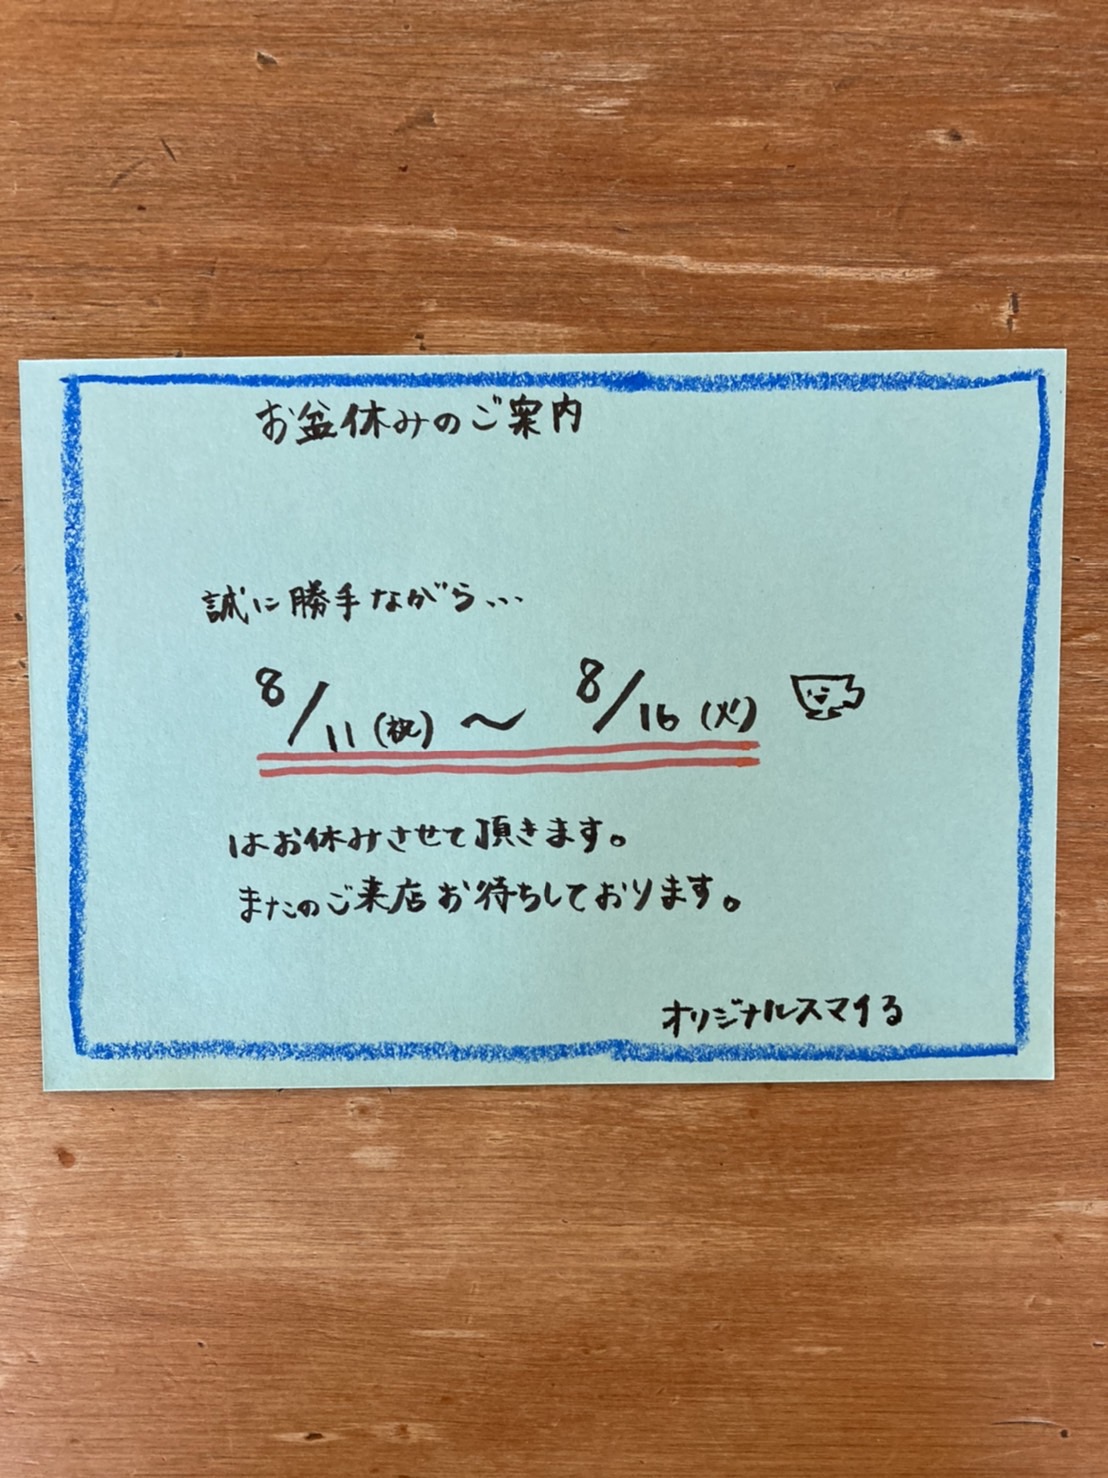 お盆休みのご案内
誠に勝手ながら...
8/11(祝)〜8/16(火)
はお休みさせて頂きます。
またのご来店お待ちしております。
オリジナルスマイる